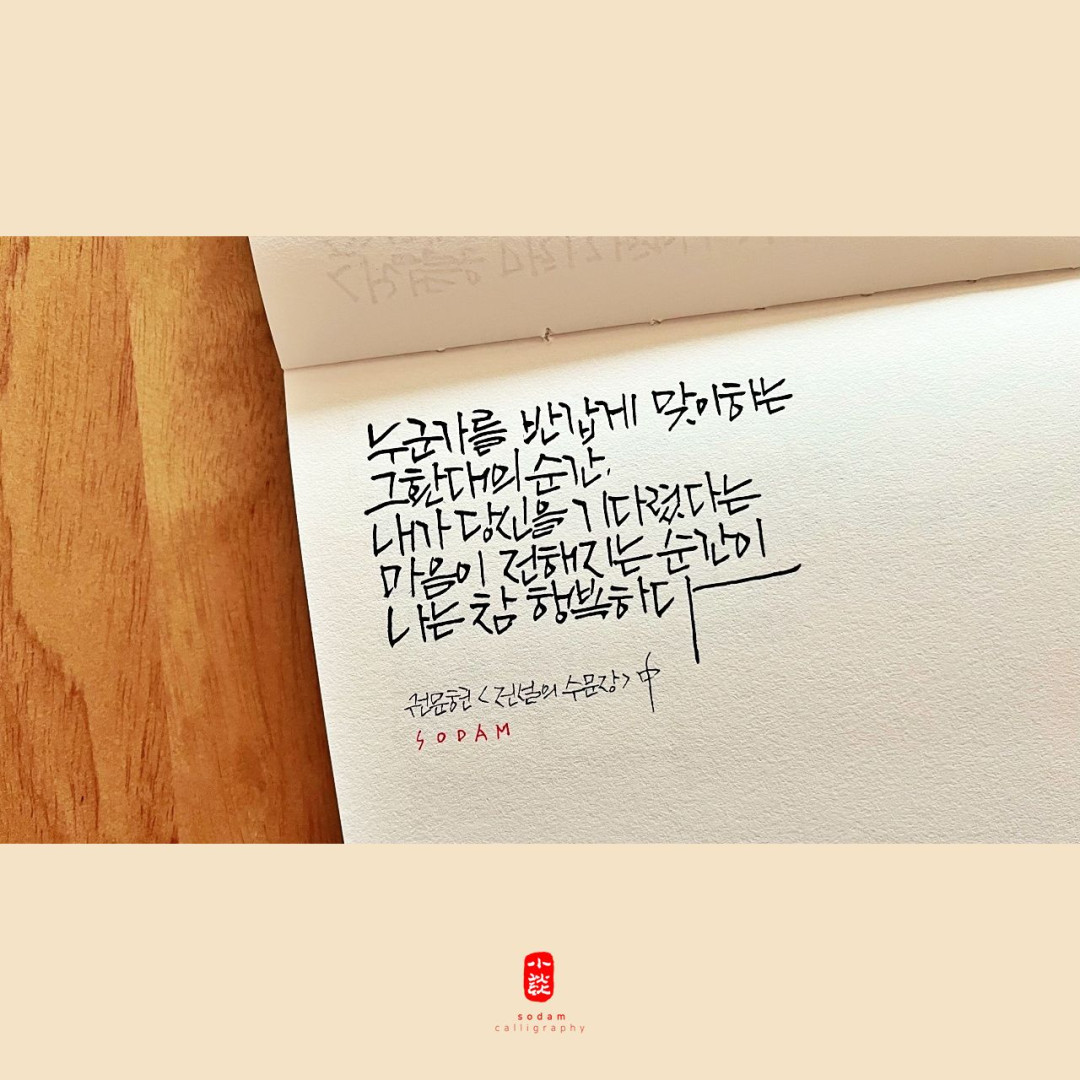 누군가를 반갑게 맞이하는
그 환대의 순간,
내가 당신을 기다렸다는
마음이 전해지는 순간이
나는 참 행복하다
권문현 <전설의 수문장> 中
SODAM
小談
sodam
calligraphy